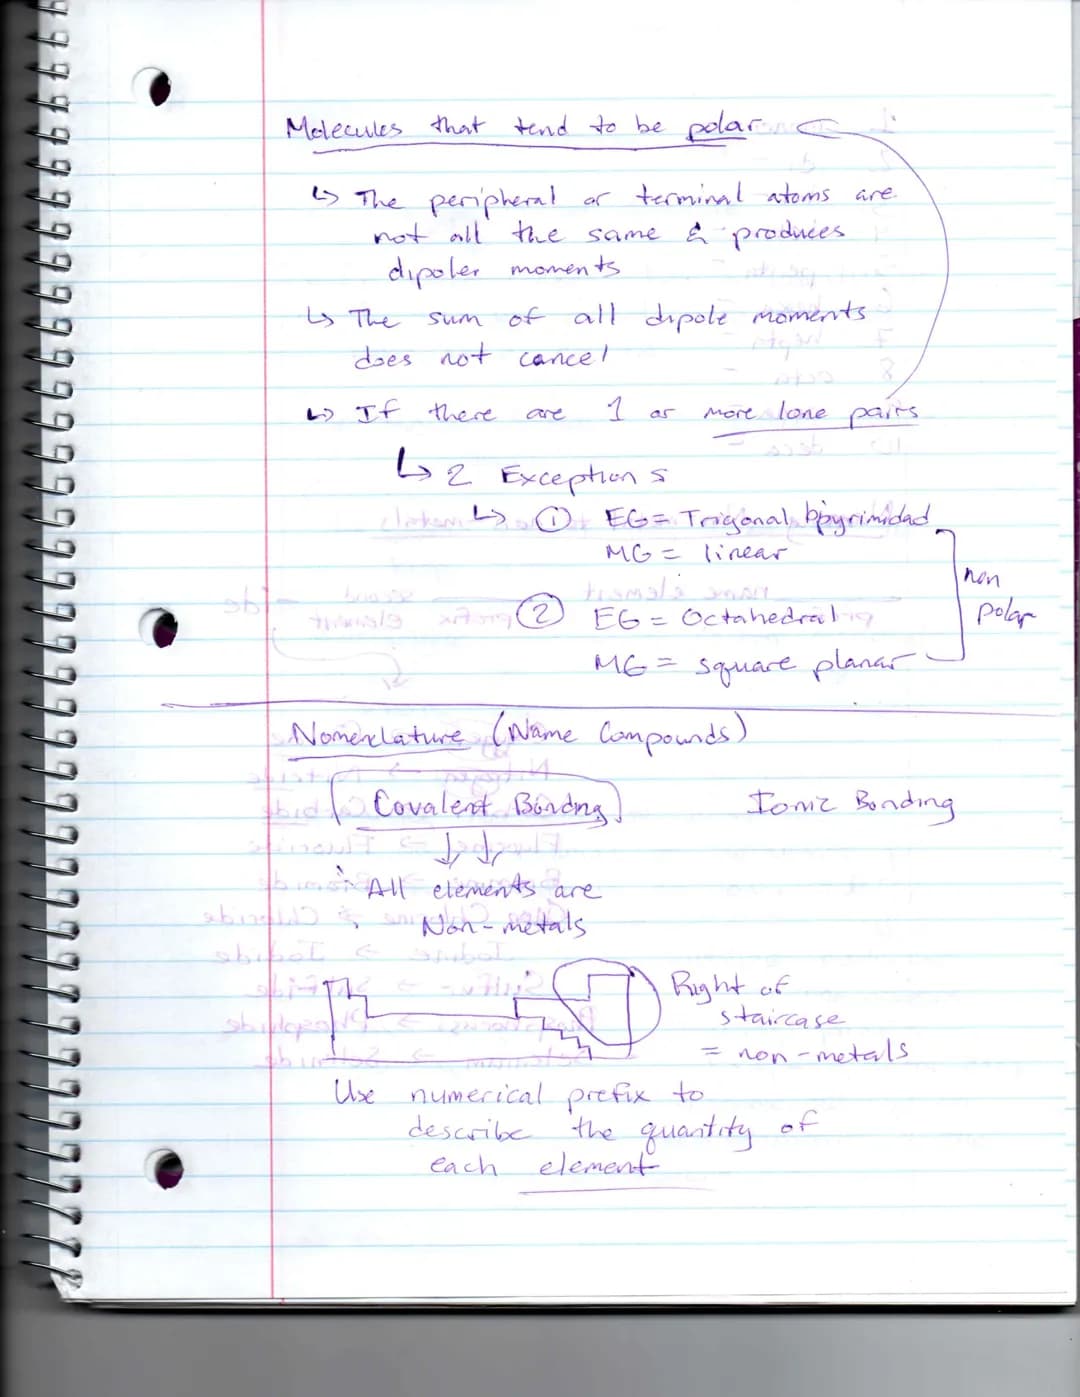 Molecules that tend to be polar
↳ The peripheral or terminal atoms are
not all the same & produces
dipoler moments
↳ The sum of all dipole moments
does not cancel
↳ If there are 1 or more lone pairs
↳ 2 Exceptions
↳ ① EG = Trigonal bpyrimidad
MG = linear
② EG = Octahedral
MG = square planar
non
polar
Nomenclature (Name Compounds)
Covalent Bonding
Ionic Bonding
All elements are
Non-metals
Right of
staircase
= non-metals
Use numerical prefix to
describe the quantity of
each element